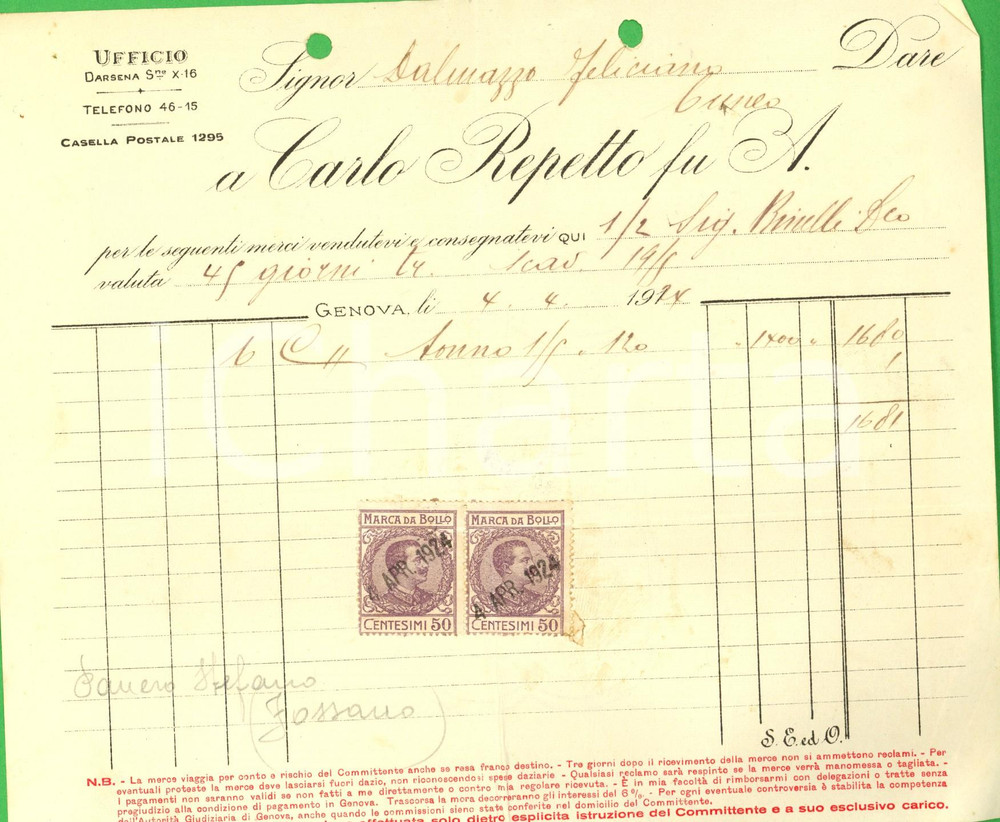 UFFICIO
DARSENA S.ne X-16
TELEFONO 46-15
CASELLA POSTALE 1295
Signor Dalmazzo Feliciano Dare
Cuneo
a Carlo Repetto fu A.
per le seguenti merci vendutevi e consegnatevi QUI 1/2 Sig.
valuta 45 giorni tr. scad. 19/5
GENOVA, li 4. 4. 1924
6 C/ Tonno 1/5 „ 120 „ 1400 „ 1680
1
1681
ICharta
MARCA DA BOLLO MARCA DA BOLLO
4 APR. 1924 4 APR. 1924
CENTESIMI 50 CENTESIMI 50
Panero Stefano
(Fossano)
S. E. ed O.
N.B. - La merce viaggia per conto e rischio del Committente anche se resa franco destino. - Tre giorni dopo il ricevimento della merce non si ammettono reclami. - Per
eventuali proteste la merce deve lasciarsi fuori dazio, non riconoscendosi spese daziarie - Qualsiasi reclamo sarà respinto se la merce verrà manomessa o tagliata. -
I pagamenti non saranno validi se non fatti a me direttamente o contro mia regolare ricevuta. - È in mia facoltà di rimborsarmi con delegazioni o tratte senza
pregiudizio alla condizione di pagamento in Genova. Trascorsa la mora decorreranno gli interessi del 6%. - Per ogni eventuale controversia è stabilita la competenza
dell'Autorità Giudiziaria di Genova, anche quando le commissioni sieno state conferite nel domicilio del Committente.
effettuata solo dietro esplicita istruzione del Committente e a suo esclusivo carico.